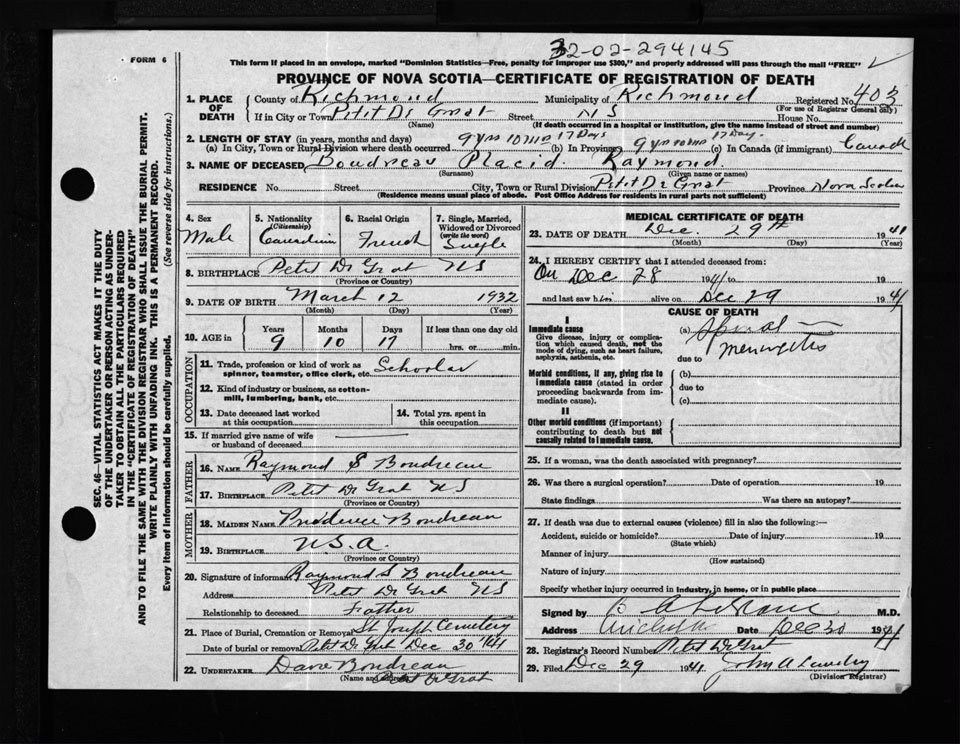 32-02-294145
FORM 6
This form if placed in an envelope, marked "Dominion Statistics—Free, penalty for improper use $300," and properly addressed will pass through the mail "FREE"
PROVINCE OF NOVA SCOTIA—CERTIFICATE OF REGISTRATION OF DEATH
1. PLACE OF DEATH
County of Richmond Municipality of Richmond Registered No. 403
(For use of Registrar General only)
If in City or Town Petit De Grat Street NS House No.
(Name) (If death occurred in a hospital or institution, give the name instead of street and number)
2. LENGTH OF STAY (in years, months and days)
(a) In City, Town or Rural Division where death occurred 9 yrs 10 mo 17 Days (b) In Province 9 yrs 10 mo 17 Day. (c) In Canada (if immigrant) Canada
3. NAME OF DECEASED Boudreau Placid Raymond
(Surname) (Given name or names)
RESIDENCE No. Street City, Town or Rural Division Petit De Grat Province Nova Scotia
(Residence means usual place of abode. Post Office Address for residents in rural parts not sufficient)
4. Sex
Male
5. Nationality (Citizenship)
Canadian
6. Racial Origin
French
7. Single, Married, Widowed or Divorced (write the word)
Single
8. BIRTHPLACE Petit De Grat NS
(Province or Country)
9. DATE OF BIRTH March 12 1932
(Month) (Day) (Year)
10. AGE in
Years Months Days If less than one day old
9 10 17 hrs. or min.
OCCUPATION
11. Trade, profession or kind of work as spinner, teamster, office clerk, etc. Scholar
12. Kind of industry or business, as cotton-mill, lumbering, bank, etc.
13. Date deceased last worked at this occupation
14. Total yrs. spent in this occupation
15. If married give name of wife or husband of deceased
FATHER
16. NAME Raymond S Boudreau
17. BIRTHPLACE Petit De Grat NS
(Province or Country)
MOTHER
18. MAIDEN NAME Prudence Boudreau
19. BIRTHPLACE U.S.A.
(Province or Country)
20. Signature of informant Raymond S Boudreau
Address Petit De Grat NS
Relationship to deceased Father
21. Place of Burial, Cremation or Removal St Joseph Cemetery
Date of burial or removal Petit De Grat Dec 30 1941
22. UNDERTAKER Dave Boudreau
(Name and address) Petit De Grat
MEDICAL CERTIFICATE OF DEATH
23. DATE OF DEATH Dec. 29th 1941
(Month) (Day) (Year)
24. I HEREBY CERTIFY that I attended deceased from:
On Dec 28 1941 to 19
and last saw him alive on Dec 29 1941
CAUSE OF DEATH
I
Immediate cause
Give disease, injury or complication which caused death, not the mode of dying, such as heart failure, asphyxia, asthenia, etc.
(a) Spinal meningitis
due to
Morbid conditions, if any, giving rise to immediate cause (stated in order proceeding backwards from immediate cause).
(b)
due to
(c)
II
Other morbid conditions (if important) contributing to death but not causally related to immediate cause.
25. If a woman, was the death associated with pregnancy?
26. Was there a surgical operation? Date of operation 19
State findings Was there an autopsy?
27. If death was due to external causes (violence) fill in also the following:—
Accident, suicide or homicide? Date of injury 19
(State which)
Manner of injury
(How sustained)
Nature of injury
Specify whether injury occurred in industry, in home, or in public place
Signed by M.D.
Address Arichat Date Dec 30 1941
28. Registrar's Record Number Petit De Grat
29. Filed Dec 29 1941 John A Landry
(Division Registrar)
SEC. 46—VITAL STATISTICS ACT MAKES IT THE DUTY
OF THE UNDERTAKER OR PERSON ACTING AS UNDER-
TAKER TO OBTAIN ALL THE PARTICULARS REQUIRED
IN THE "CERTIFICATE OF REGISTRATION OF DEATH"
AND TO FILE THE SAME WITH THE DIVISION REGISTRAR WHO SHALL ISSUE THE BURIAL PERMIT.
WRITE PLAINLY WITH UNFADING INK. THIS IS A PERMANENT RECORD.
Every item of information should be carefully supplied. (See reverse side for instructions.)